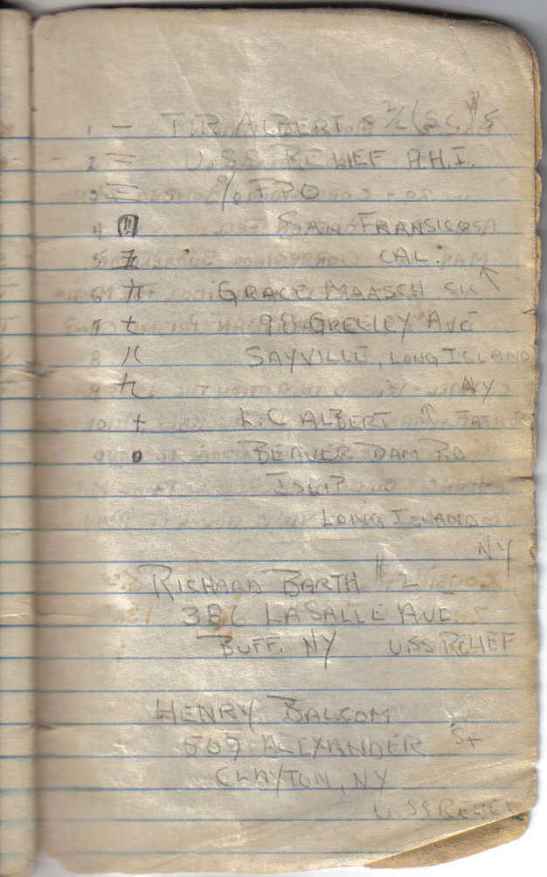 1 一 T.R. ALBERT. S 2/c (SC)
2 二 U.S.S RELIEF A.H.I.
3 三 % F.P.O
4 四 SAN FRANSICO
5 五 CAL.
6 六 GRACE MAASCH
7 七 98 GREELEY AVE
8 八 SAYVILLE, LONG ISLAND
9 九 NY
10 十 L.C ALBERT
0 BEAVER DAM RD
ISLIP
LONG ISLAND
NY
RICHARD BARTH
LASALLE AVE.
BUFF. NY U.SS RELIEF
HENRY BALCOM
ALEXANDER St
CLAYTON, NY
U.SS RELIEF